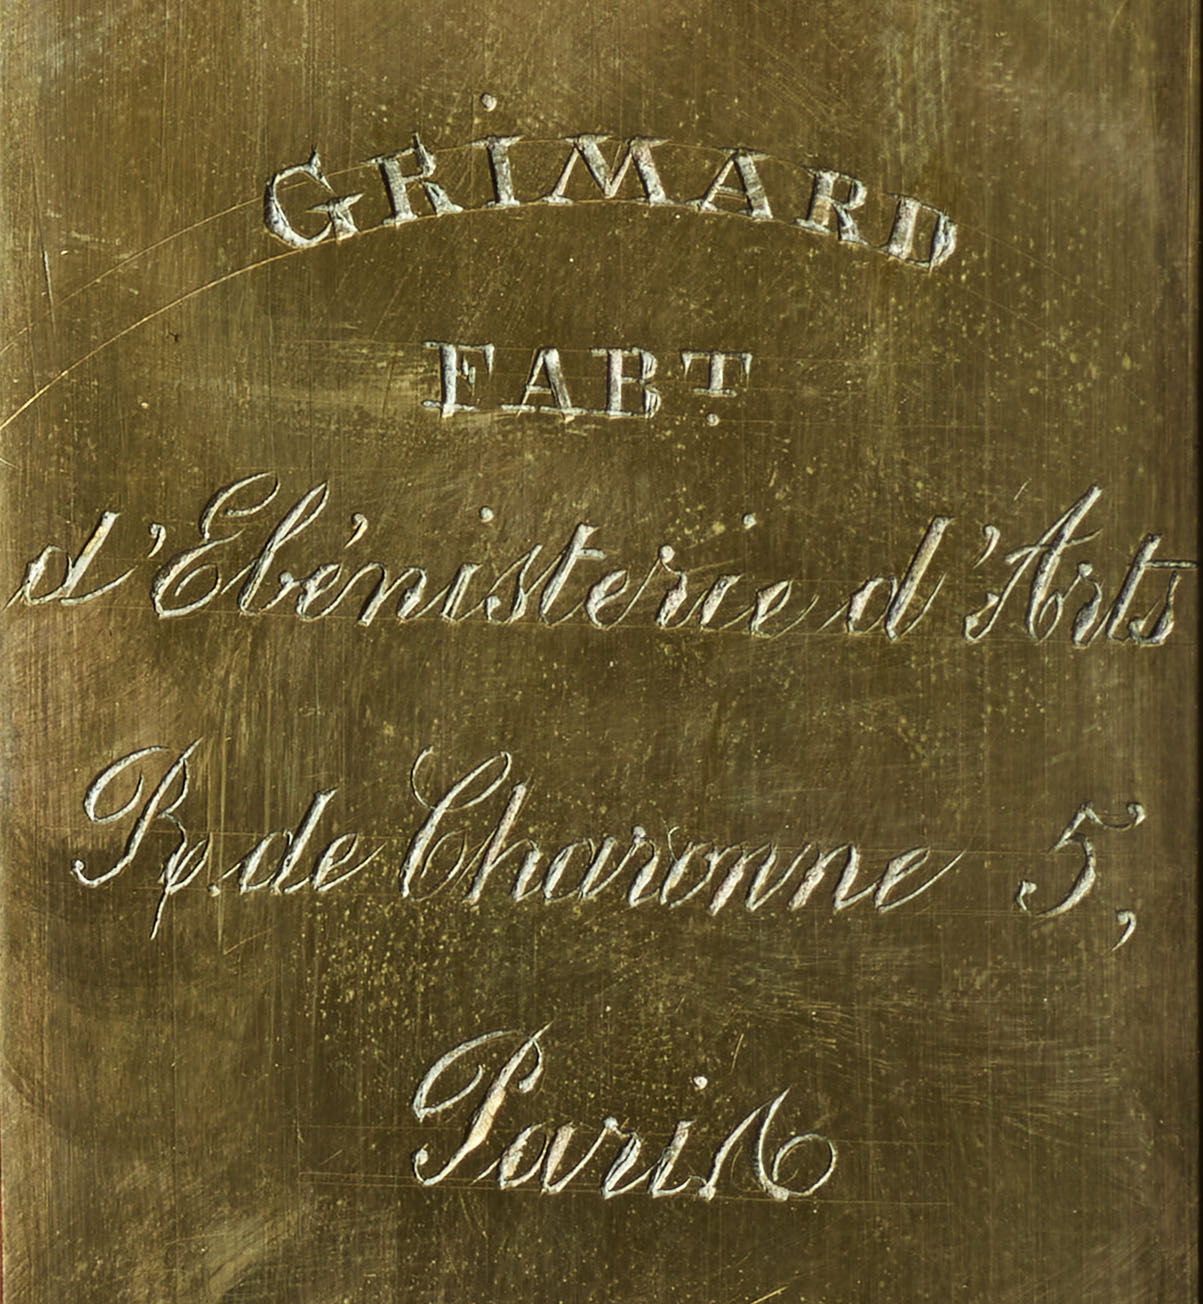 GRiMARD
FABT.
d'Ebénisterie d'Arts
Re. de Charonne 5,
Paris